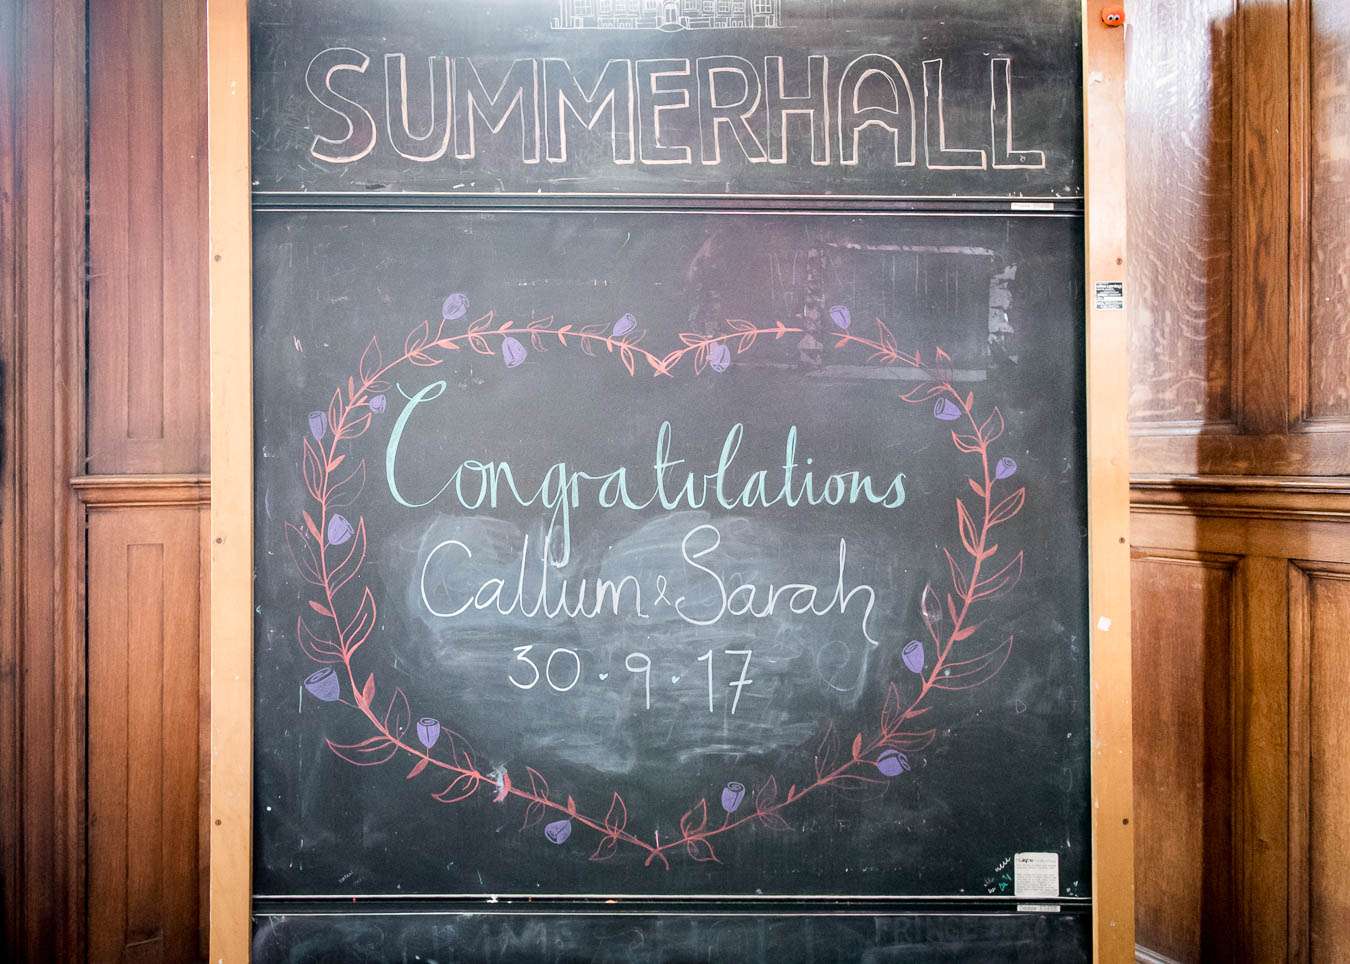 SUMMERHALL
Congratulations
Callum & Sarah
30 · 9 · 17